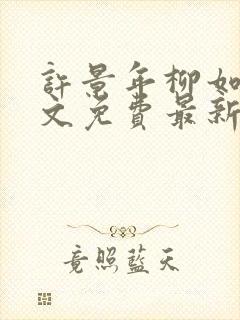 許景年柳如
文免費最新
竟照藍天